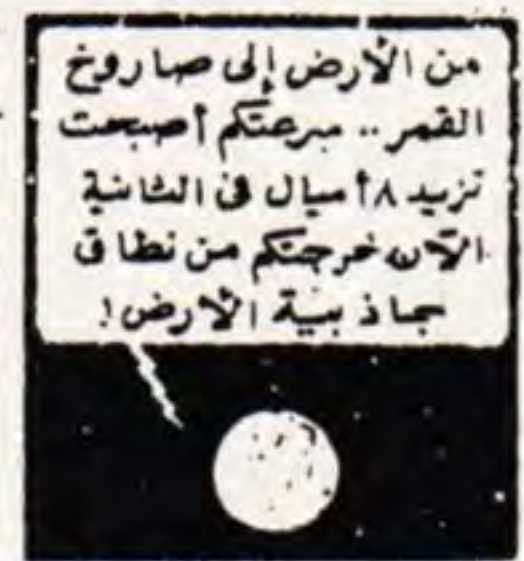 من الأرض إلى صاروخ
القمر .. سرعتكم أصبحت
تزيد ٨ أميال في الثانية
الآن خرجتكم من نطاق
جاذبية الأرض !